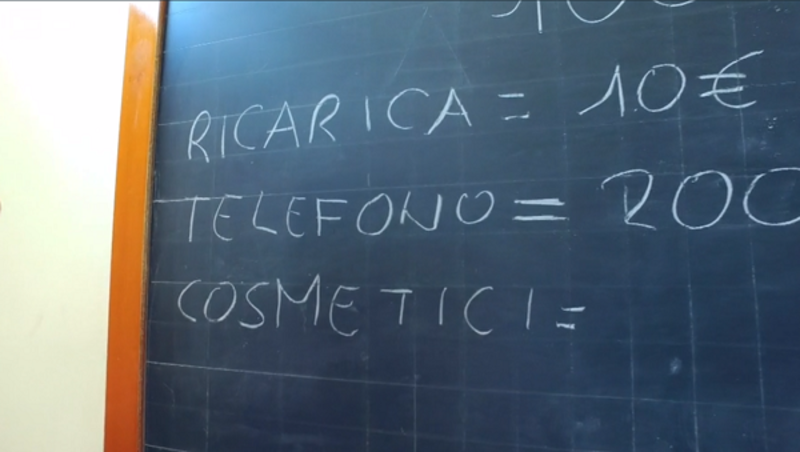 RICARICA = 10€
TELEFONO = 200
COSMETICI =